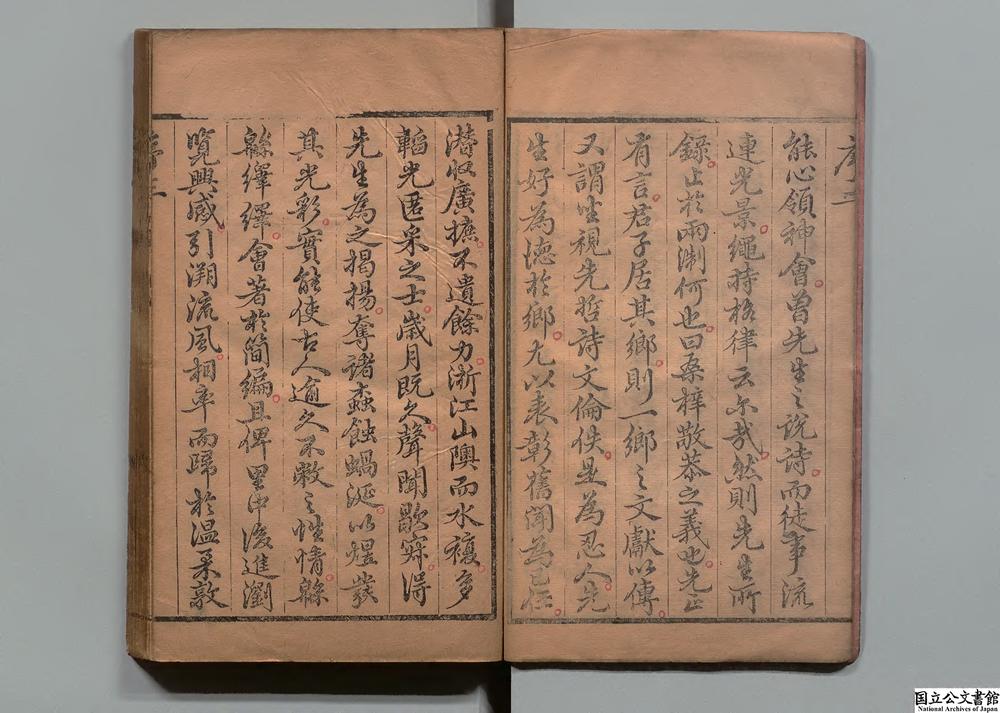 序二
能心領神會曾先生之説詩而徒事流
連光景繩持格律云尔哉然則先生所
錄止於兩淛何也曰桑梓敬恭之義也先正
有言君子居其鄉則一鄉之文獻以傳
又謂坐視先哲詩文倫佚是為忍人先
生好為德於鄉尤以表彰舊聞為己任
潛收廣摭不遺餘力浙江山隩而水複多
韜光匿采之士歲月既久聲聞歇寐得
先生為之揭揚奪諸蟲蝕蝸涎以煜發
其光彩實能使古人逾久不敝之性情緜
緜繹繹會著於簡編且俾里中後進瀏
覽興感引溯流風相率而歸於温柔敦
国立公文書館
National Archives of Japan